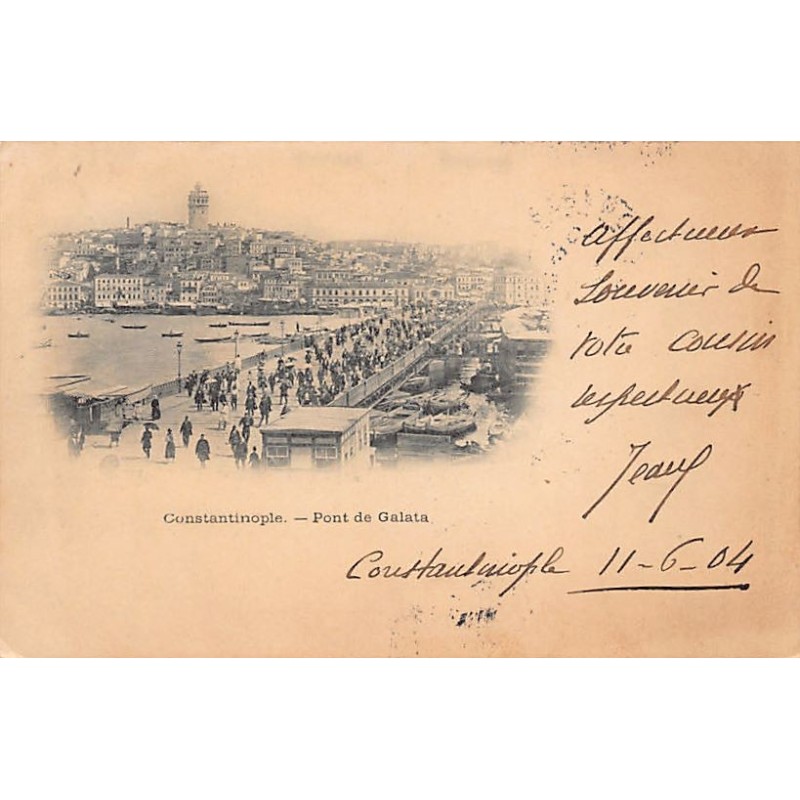 Affectueux
Souvenir de
votre cousin
respectueux
Jean
Constantinople. — Pont de Galata
Constantinople 11-6-04